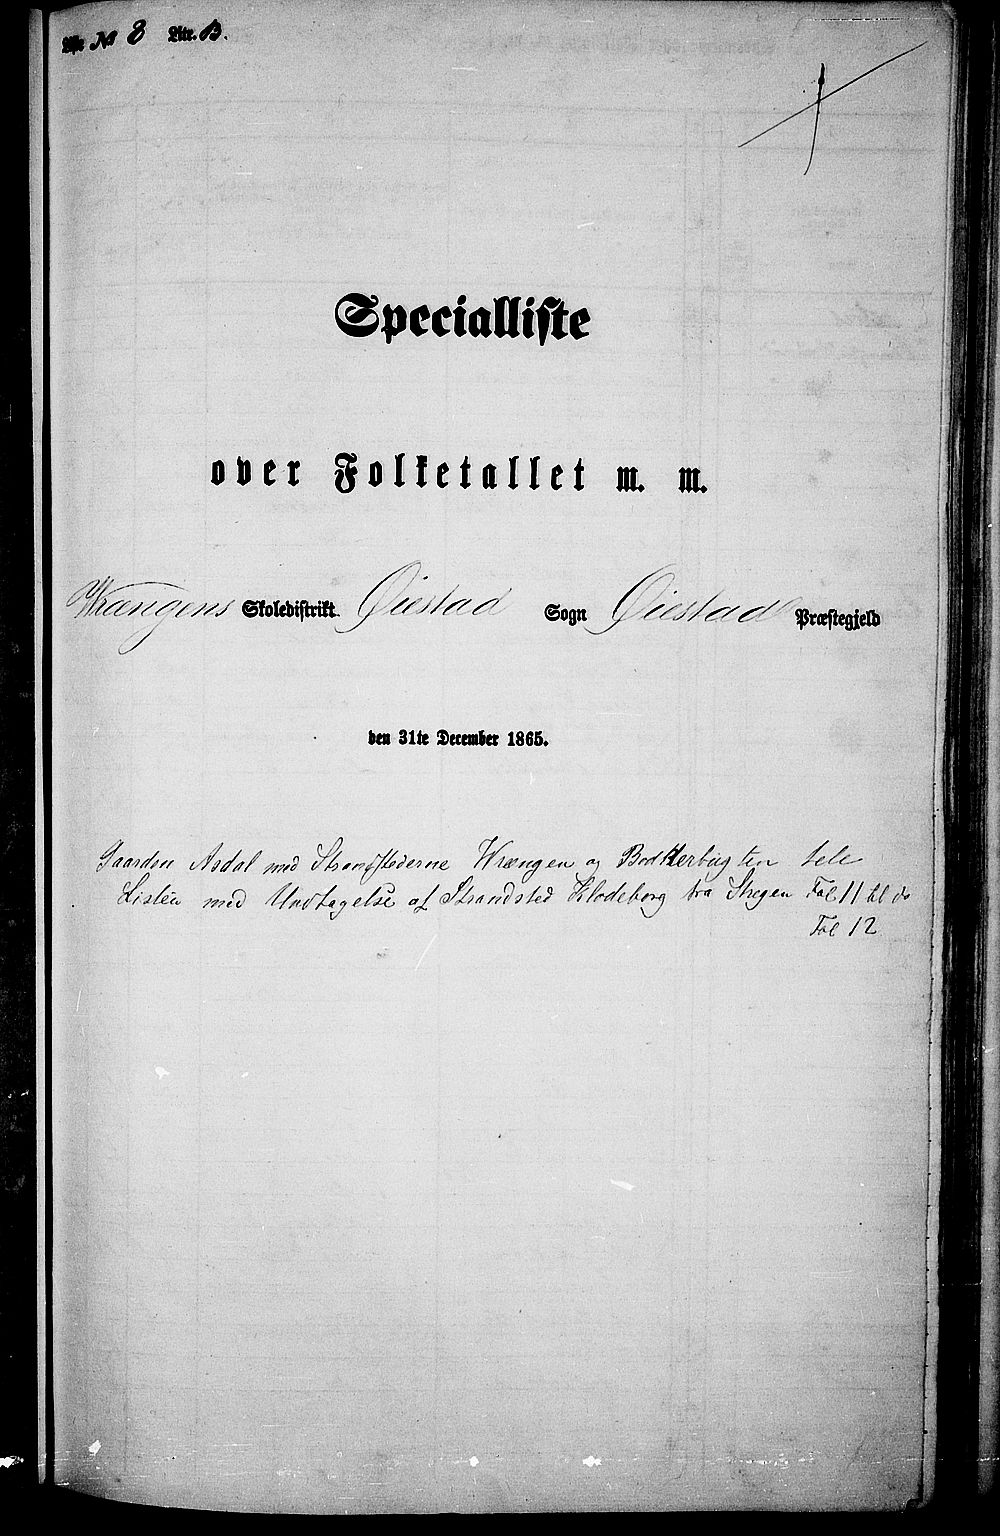 No 8 Litr. B.
Specialliste
over Folketallet m. m.
Wrængens Skoledistrikt Øiestad Sogn Øiestad Præstegjeld
den 31te December 1865.
Gaarden Asdal med Strandstederne Wrængen og Bodkerbugten hele
Listen med Undtagelse af Strandsted Klodeborg fra Stregen Fol 11 til do
Fol 12